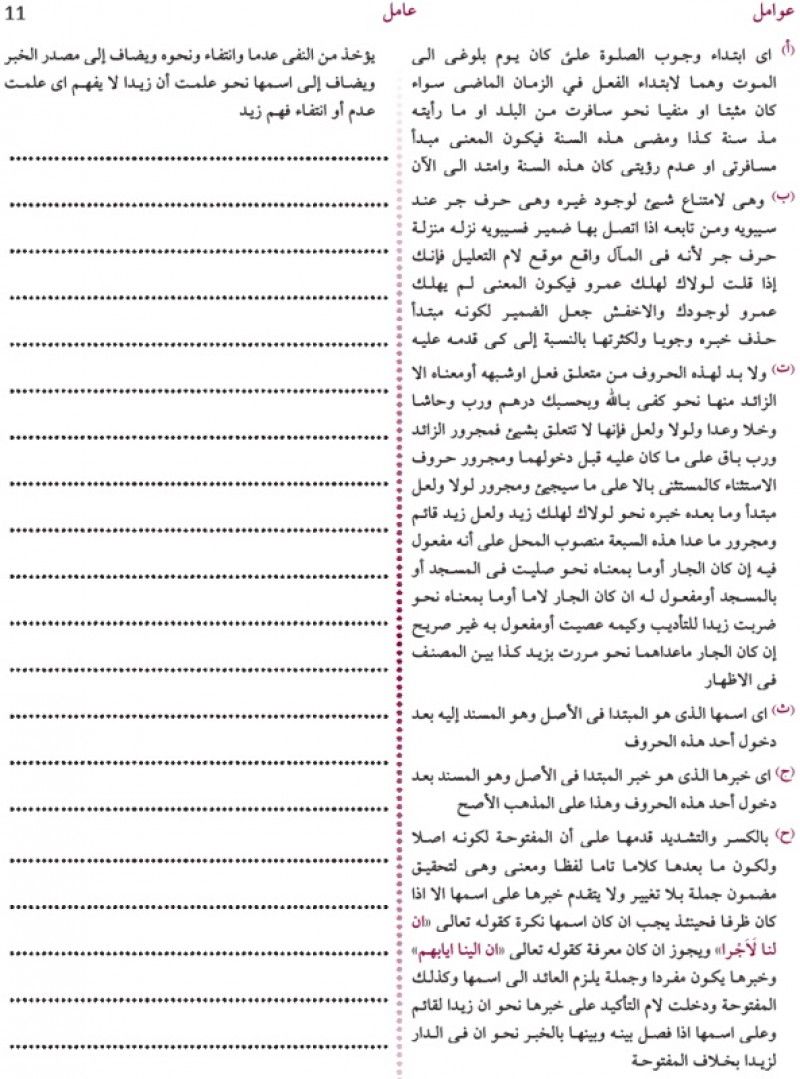 عوامل
عامل
11
(أ) اى ابتداء وجوب الصلوة علئ كان يوم بلوغى الى
الموت وهما لابتداء الفعل في الزمان الماضى سواء
كان مثبتا او منفيا نحو سافرت من البلد او ما رأيته
مذ سنة كذا ومضى هذه السنة فيكون المعنى مبدأ
مسافرتى او عدم رؤيتى كان هذه السنة وامتد الى الآن
(ب) وهى لامتناع شيئ لوجود غيره وهى حرف جر عند
سيبويه ومن تابعه اذا اتصل بها ضمير فسيبويه نزله منزلة
حرف جر لأنه فى المآل واقع موقع لام التعليل فإنك
إذا قلت لولاك لهلك عمرو فيكون المعنى لم يهلك
عمرو لوجودك والاخفش جعل الضمير لكونه مبتدأ
حذف خبره وجوبا ولكثرتها بالنسبة إلى كى قدمه عليه
(ت) ولا بد لهذه الحروف من متعلق فعل اوشبهه أومعناه الا
الزائد منها نحو كفى بالله وبحسبك درهم ورب وحاشا
وخلا وعدا ولولا ولعل فإنها لا تتعلق بشيئ فمجرور الزائد
ورب باق على ما كان عليه قبل دخولهما ومجرور حروف
الاستثناء كالمستثنى بالا على ما سيجيئ ومجرور لولا ولعل
مبتدأ وما بعده خبره نحو لولاك لهلك زيد ولعل زيد قائم
ومجرور ما عدا هذه السبعة منصوب المحل على أنه مفعول
فيه إن كان الجار أوما بمعناه نحو صليت فى المسجد أو
بالمسجد أومفعول له ان كان الجار لاما أوما بمعناه نحو
ضربت زيدا للتأديب وكيمه عصيت أومفعول به غير صريح
إن كان الجار ماعداهما نحو مررت بزيد كذا بين المصنف
فى الاظهار
(ث) اى اسمها الذى هو المبتدا فى الأصل وهو المسند إليه بعد
دخول أحد هذه الحروف
(ج) اى خبرها الذى هو خبر المبتدا فى الأصل وهو المسند بعد
دخول أحد هذه الحروف وهذا على المذهب الأصح
(ح) بالكسر والتشديد قدمها على أن المفتوحة لكونه اصلا
ولكون ما بعدها كلاما تاما لفظا ومعنى وهى لتحقيق
مضمون جملة بلا تغيير ولا يتقدم خبرها على اسمها الا اذا
كان ظرفا فحينئذ يجب ان كان اسمها نكرة كقوله تعالى «ان
لنا لَاَجْرا» ويجوز ان كان معرفة كقوله تعالى «ان الينا ايابهم»
وخبرها يكون مفردا وجملة يلزم العائد الى اسمها وكذلك
المفتوحة ودخلت لام التأكيد على خبرها نحو ان زيدا لقائم
وعلى اسمها اذا فصل بينه وبينها بالخبر نحو ان فى الدار
لزيدا بخلاف المفتوحة
يؤخذ من النفى عدما وانتفاء ونحوه ويضاف إلى مصدر الخبر
ويضاف إلى اسمها نحو علمت أن زيدا لا يفهم اى علمت
عدم أو انتفاء فهم زيد